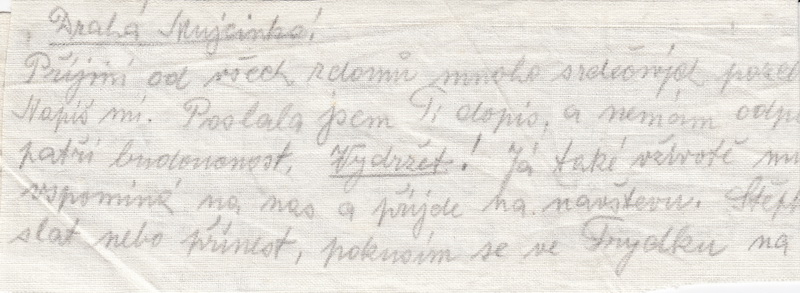 Drahá Mujcinko!
Přijmi od všech z domů mnoho srdečných pozd
Napiš mi. Poslala jsem Ti dopis, a nemám odpo
patří budoucnost. Vydržet! Já také v životě mu
vspomíná na nas a přijde na návštevu. Štěp
slat nebo přinest, pokusím se ve Frydku na